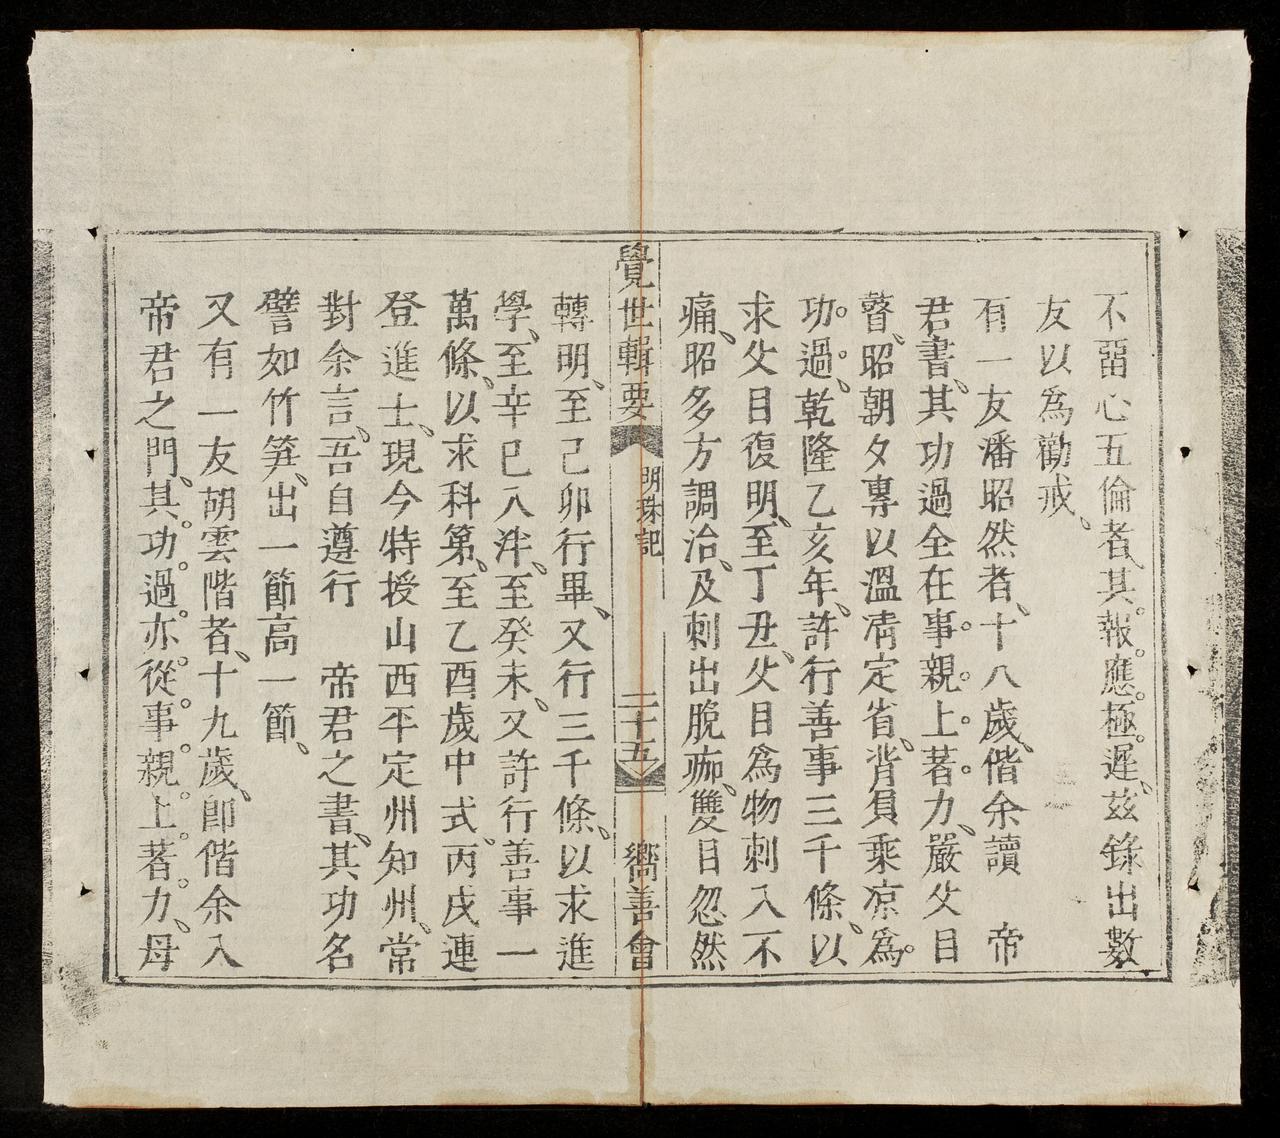 不畱心五倫者、其報應極遲、茲錄出數
友以為勸戒、
有一友潘昭然者、十八歲、偕余讀　帝
君書、其功過全在事親上著力、嚴父目
瞽、昭朝夕專以溫凊定省、背負乘凉為
功過、乾隆乙亥年、許行善事三千條、以
求父目復明、至丁丑、父目為物刺入不
痛、昭多方調治、及刺出脫痂、雙目忽然
覺世輯要　明珠記　二十五　嚮善會
轉明、至己卯行畢、又行三千條、以求進
學、至辛巳入泮、至癸未、又許行善事一
萬條、以求科第、至乙酉歲中式、丙戌連
登進士、現今特授山西平定州知州、常
對余言、吾自遵行　帝君之書、其功名
譬如竹笋、出一節高一節、
又有一友胡雲階者、十九歲、即偕余入
帝君之門、其功過亦從事親上著力、母